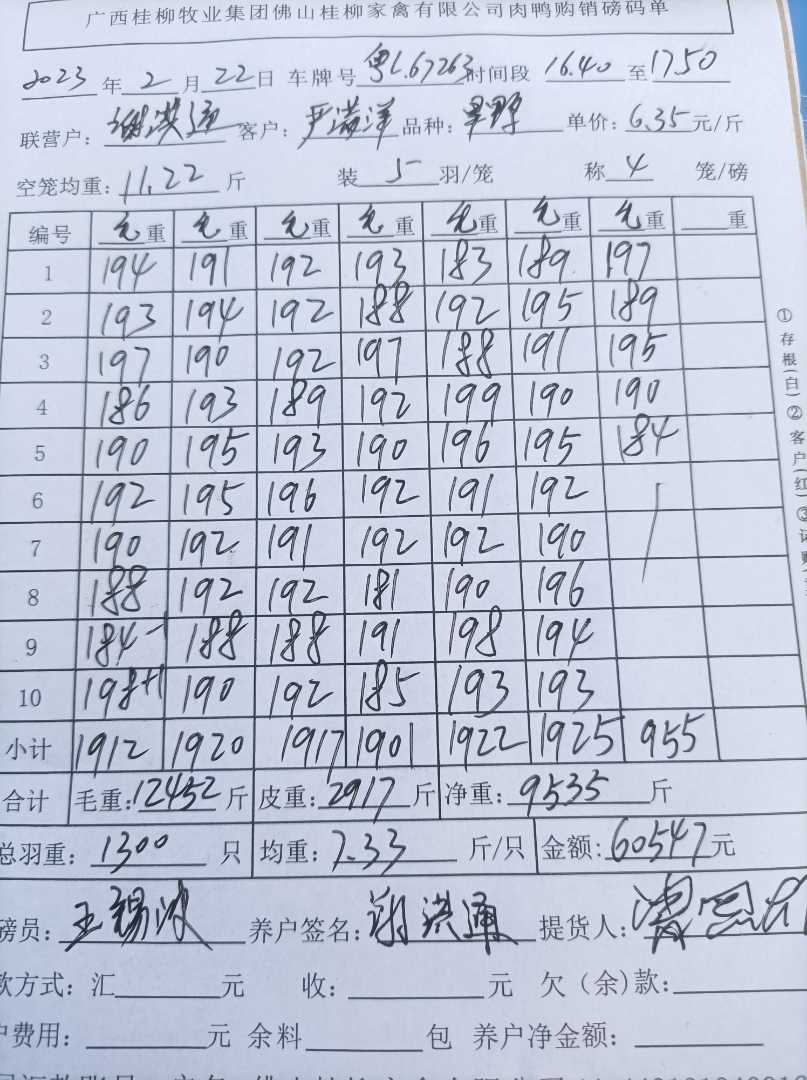 广西桂柳牧业集团佛山桂柳家禽有限公司肉鸭购销磅码单
2023年2月22日 车牌号粤L.67263时间段16.40至17.50
联营户：谢洪通 客户：严满洋 品种： 单价：6.35元/斤
空笼均重：11.22斤 装5羽/笼 称4笼/磅
编号 毛重 毛重 毛重 毛重 毛重 毛重 毛重 重
1 194 191 192 193 183 189 197
2 193 194 192 188 192 195 189
3 197 190 192 197 188 191 195
4 186 193 189 192 199 190 190
5 190 195 193 190 196 195 184
6 192 195 196 192 191 192
7 190 192 191 192 192 190
8 188 192 192 181 190 196
9 184-1 188 188 191 198 194
10 198+1 190 192 185 193 193
小计 1912 1920 1917 1901 1922 1925 955
合计 毛重：12452斤 皮重：2917斤 净重：9535斤
总羽重：1300只 均重：7.33斤/只 金额：60547元
磅员：王锡波 养户签名：谢洪通 提货人：
款方式：汇 元 收： 元 欠（余）款：
户费用： 元 余料 包 养户净金额：
①存根(白)②客户(红)③